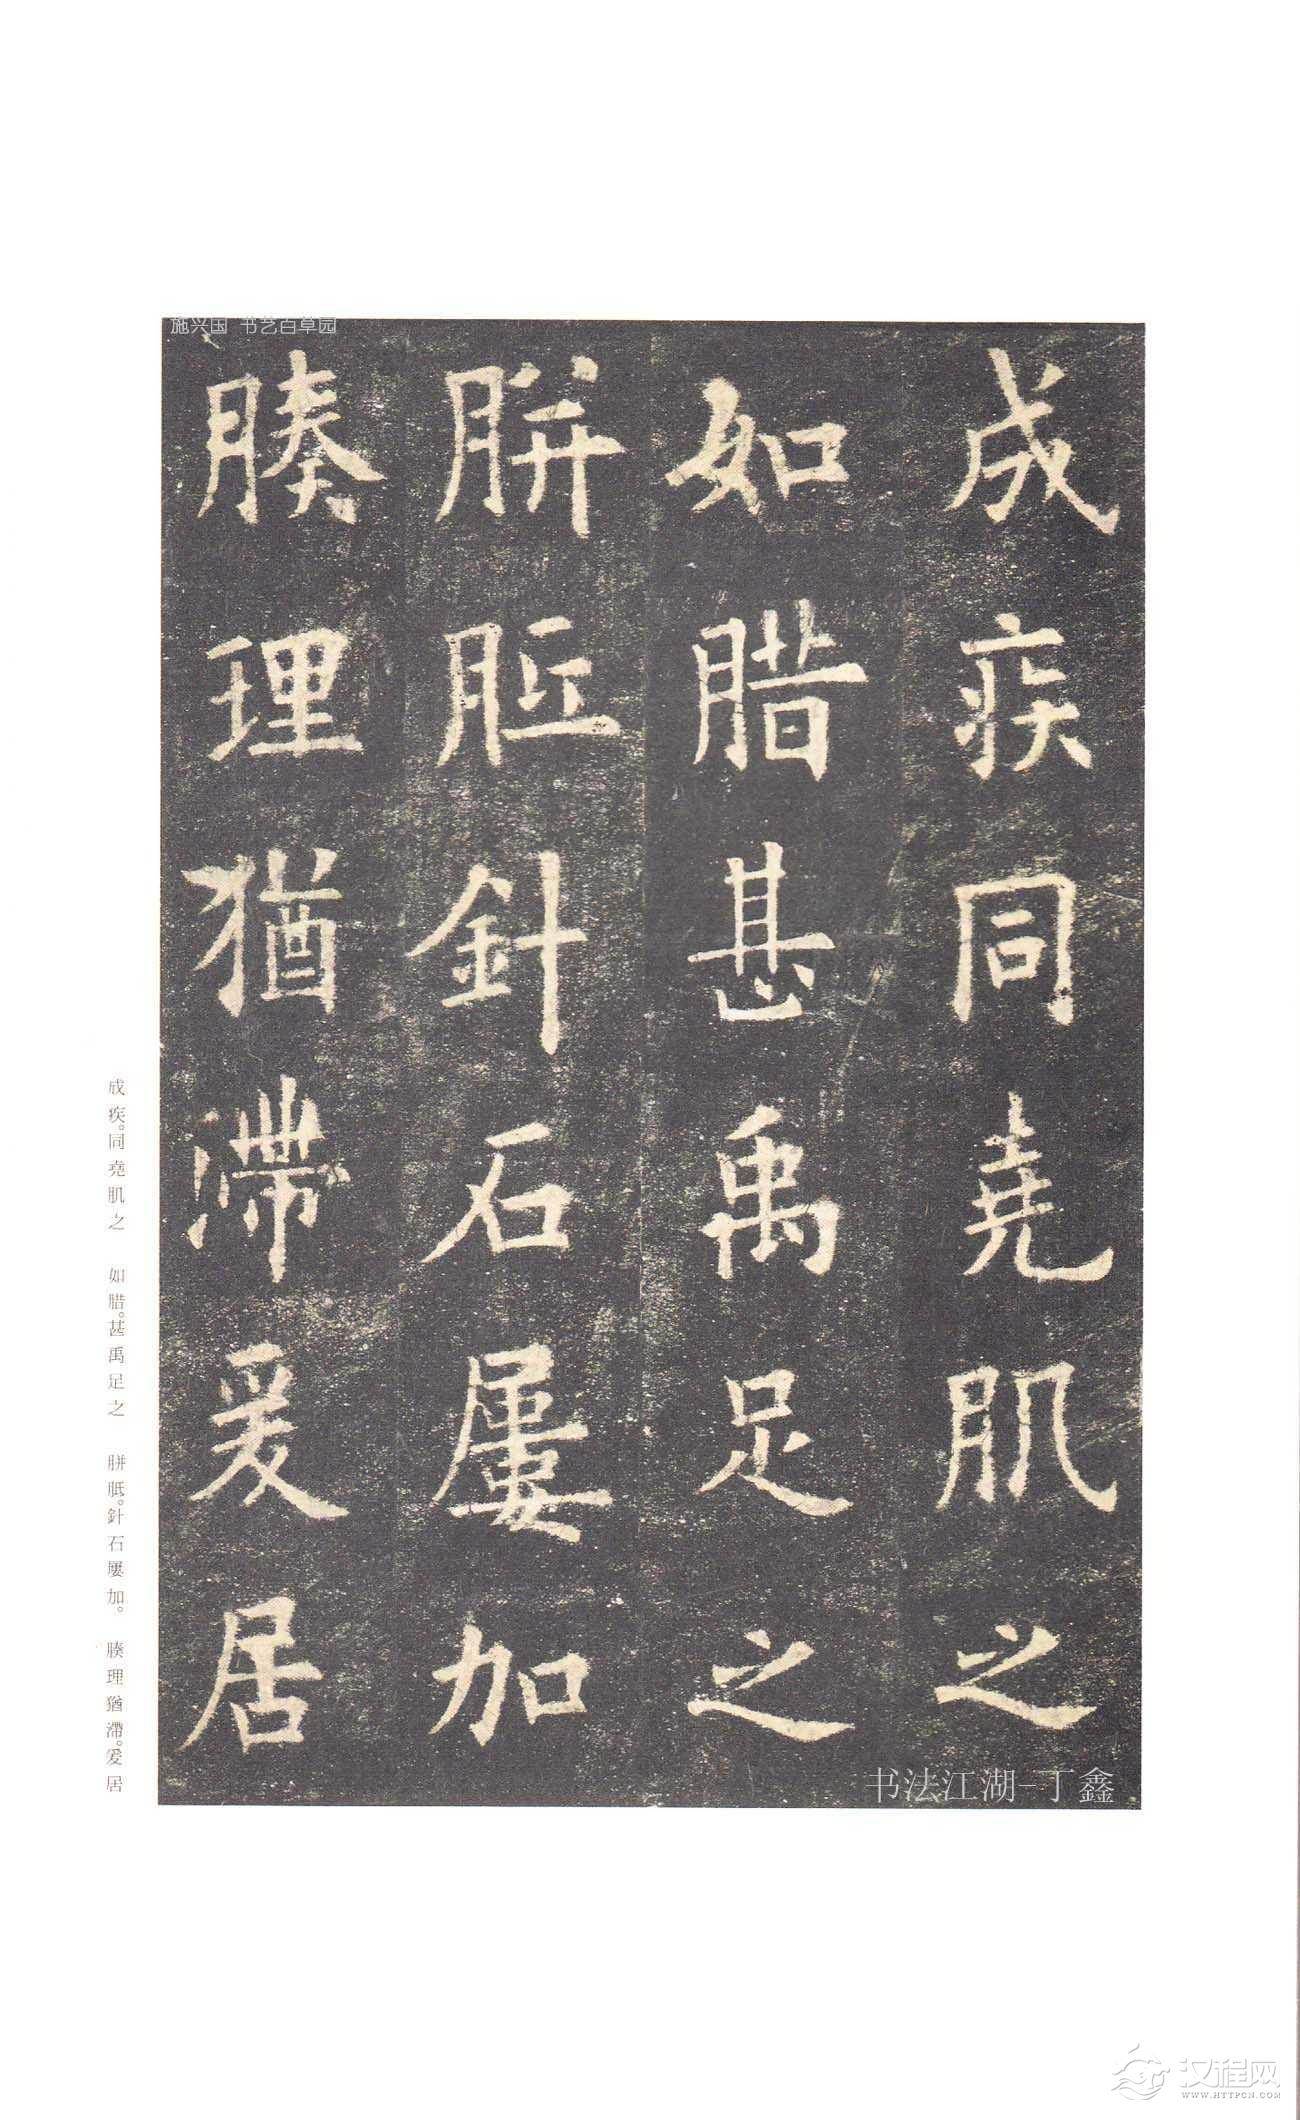 施兴国 书艺百草园
成疾同堯肌之
如腊甚禹足之
胼胝針石屢加
腠理猶滯爰居
成疾。同堯肌之 如腊。甚禹足之 胼胝。針石屢加。 腠理猶滯。爰居
书法江湖-丁鑫
汉程网
WWW.HTTPCN.COM